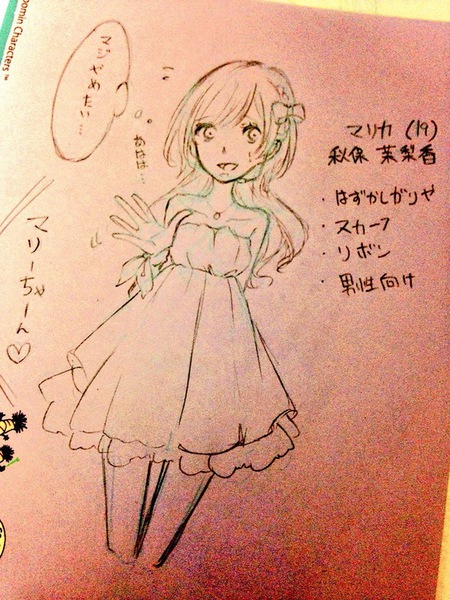 oomin Characters™
マジ
やめたい…
あはは…
マリーちゃーん♡
マリカ (19)
秋保 茉梨香
・はずかしがりや
・スカーフ
・リボン
・男性向け